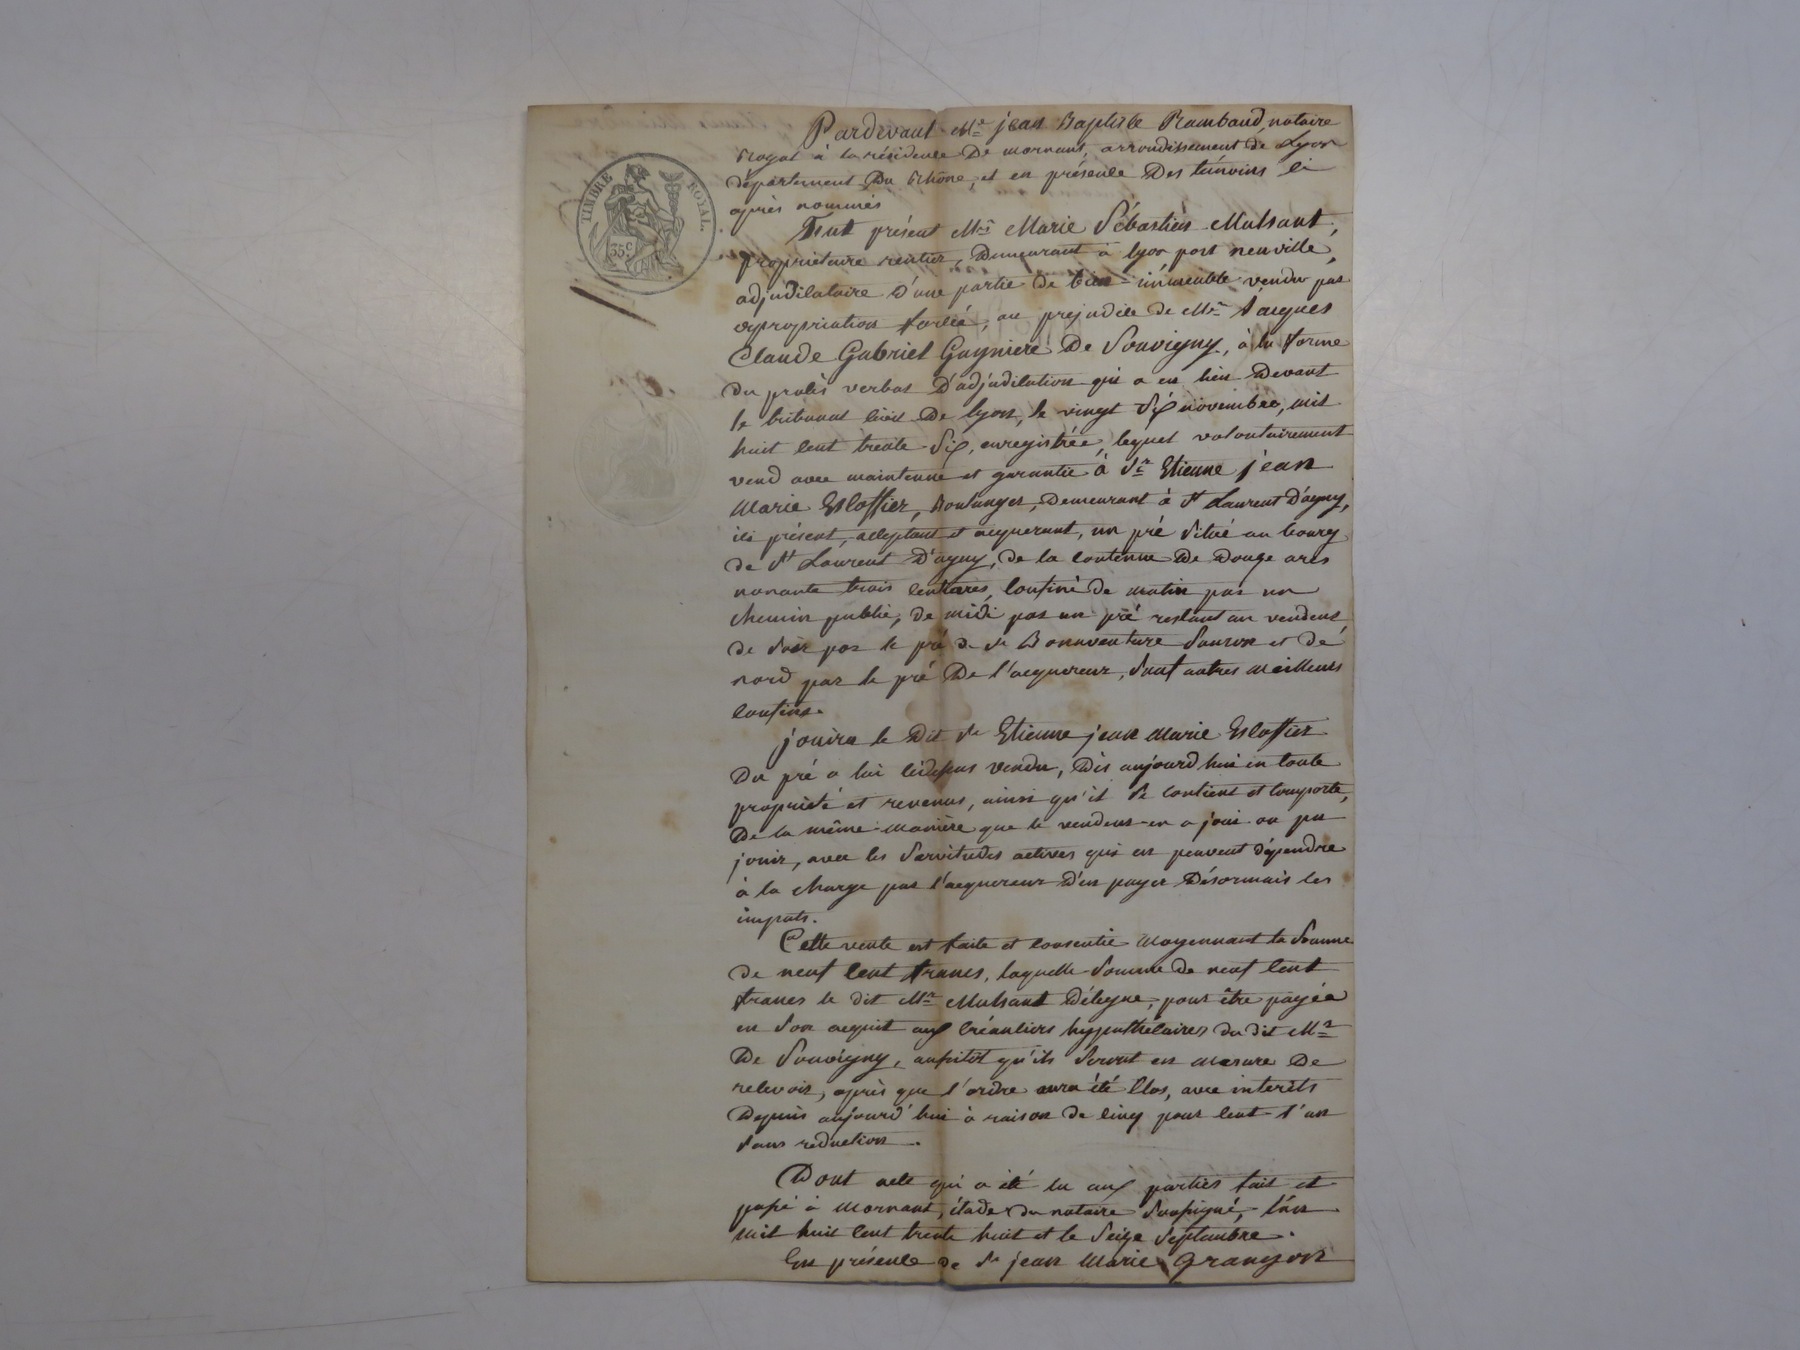 TIMBRE ROYAL.
35c
Pardevant Me jean Baptiste Rambaud, notaire
Royal à la résidence De mornant, arrondissement de Lyon
département Du Rhône, et en présence Des témoins ci
après nommés
Fut présent Mr Marie Sébastien Mulsant,
propriétaire rentier, Demeurant à Lyon port neuville,
adjudicataire D'une partie de bien immeuble vendu par
expropriation forcée, au préjudice de Mr Jacques
Claude Gabriel Gayniere De Souvigny, à la forme
Du procès verbal D'adjudication qui a eu lieu Devant
le tribunal civil De lyon, le vingt Six novembre, mil
huit cent trente Six, enregistrée, lequel volontairement
vend avec maintenue et garantie à Sr Etienne jean
Marie Escoffier, Boulanger, Demeurant à St Laurent D'agny,
ici présent, acceptant et acquerant, un pré Situé au bourg
de St Laurent D'agny, de la contenue De Douze ares
nonante trois centiares, confiné de matin par un
chemin public, de midi par un pré restant au vendeur,
de Soir par le pré de Sr Bonaventure Souron et de
nord par le pré De l'acquereur, Sauf autres meilleurs
confins.
jouira le Dit Sr Etienne jean Marie Escoffier
Du pré a lui cidessus vendu, Dès aujourd'hui en toute
propriété et revenus, ainsi qu'il Se contient et comporte,
De la même manière que le vendeur en a joui ou pu
jouir, avec les Servitudes actives qui en peuvent dépendre
à la charge par l'acquereur D'en payer Désormais les
impots.
Cette vente est faite et consentie moyennant la Somme
de neuf cent francs, laquelle Somme de neuf cent
francs le dit Mr Mulsant Délegue, pour être payée
en Son acquit aux créanciers hypothécaires du dit Mr
De Souvigny, aussitot qu'ils Seront en mesure De
recevoir, après que l'ordre aura été Clos, avec interêts
Depuis aujourd'hui à raison de cinq pour cent l'an
Sans reduction.
Dont acte qui a été lu aux parties fait et
passé à Mornant, étude du notaire Soussigné, l'an
mil huit cent trente huit et le Seize Septembre.
En présence de Sr jean Marie Grangeon